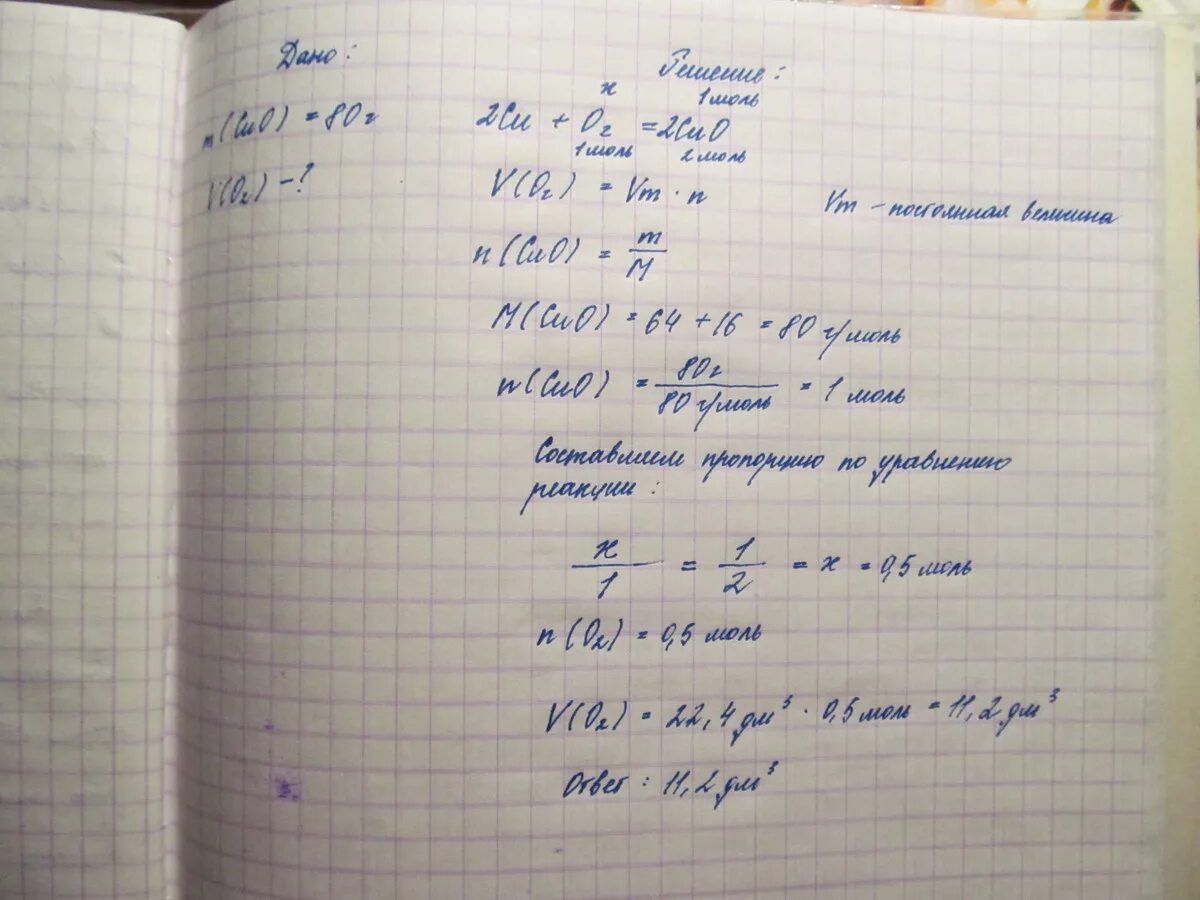 Дано:
m(CuO) = 80г
V(O₂) - ?
Решение:
x 1 моль
2Cu + O₂ = 2CuO
1 моль 2 моль
V(O₂) = Vm · n
Vm - постоянная величина
n(CuO) = m/M
M(CuO) = 64 + 16 = 80 г/моль
n(CuO) = 80г/80 г/моль = 1 моль
Составляем пропорцию по уравнению
реакции:
x/1 = 1/2 = x = 0,5 моль
n(O₂) = 0,5 моль
V(O₂) = 22,4 дм³ · 0,5 моль = 11,2 дм³
Ответ: 11,2 дм³